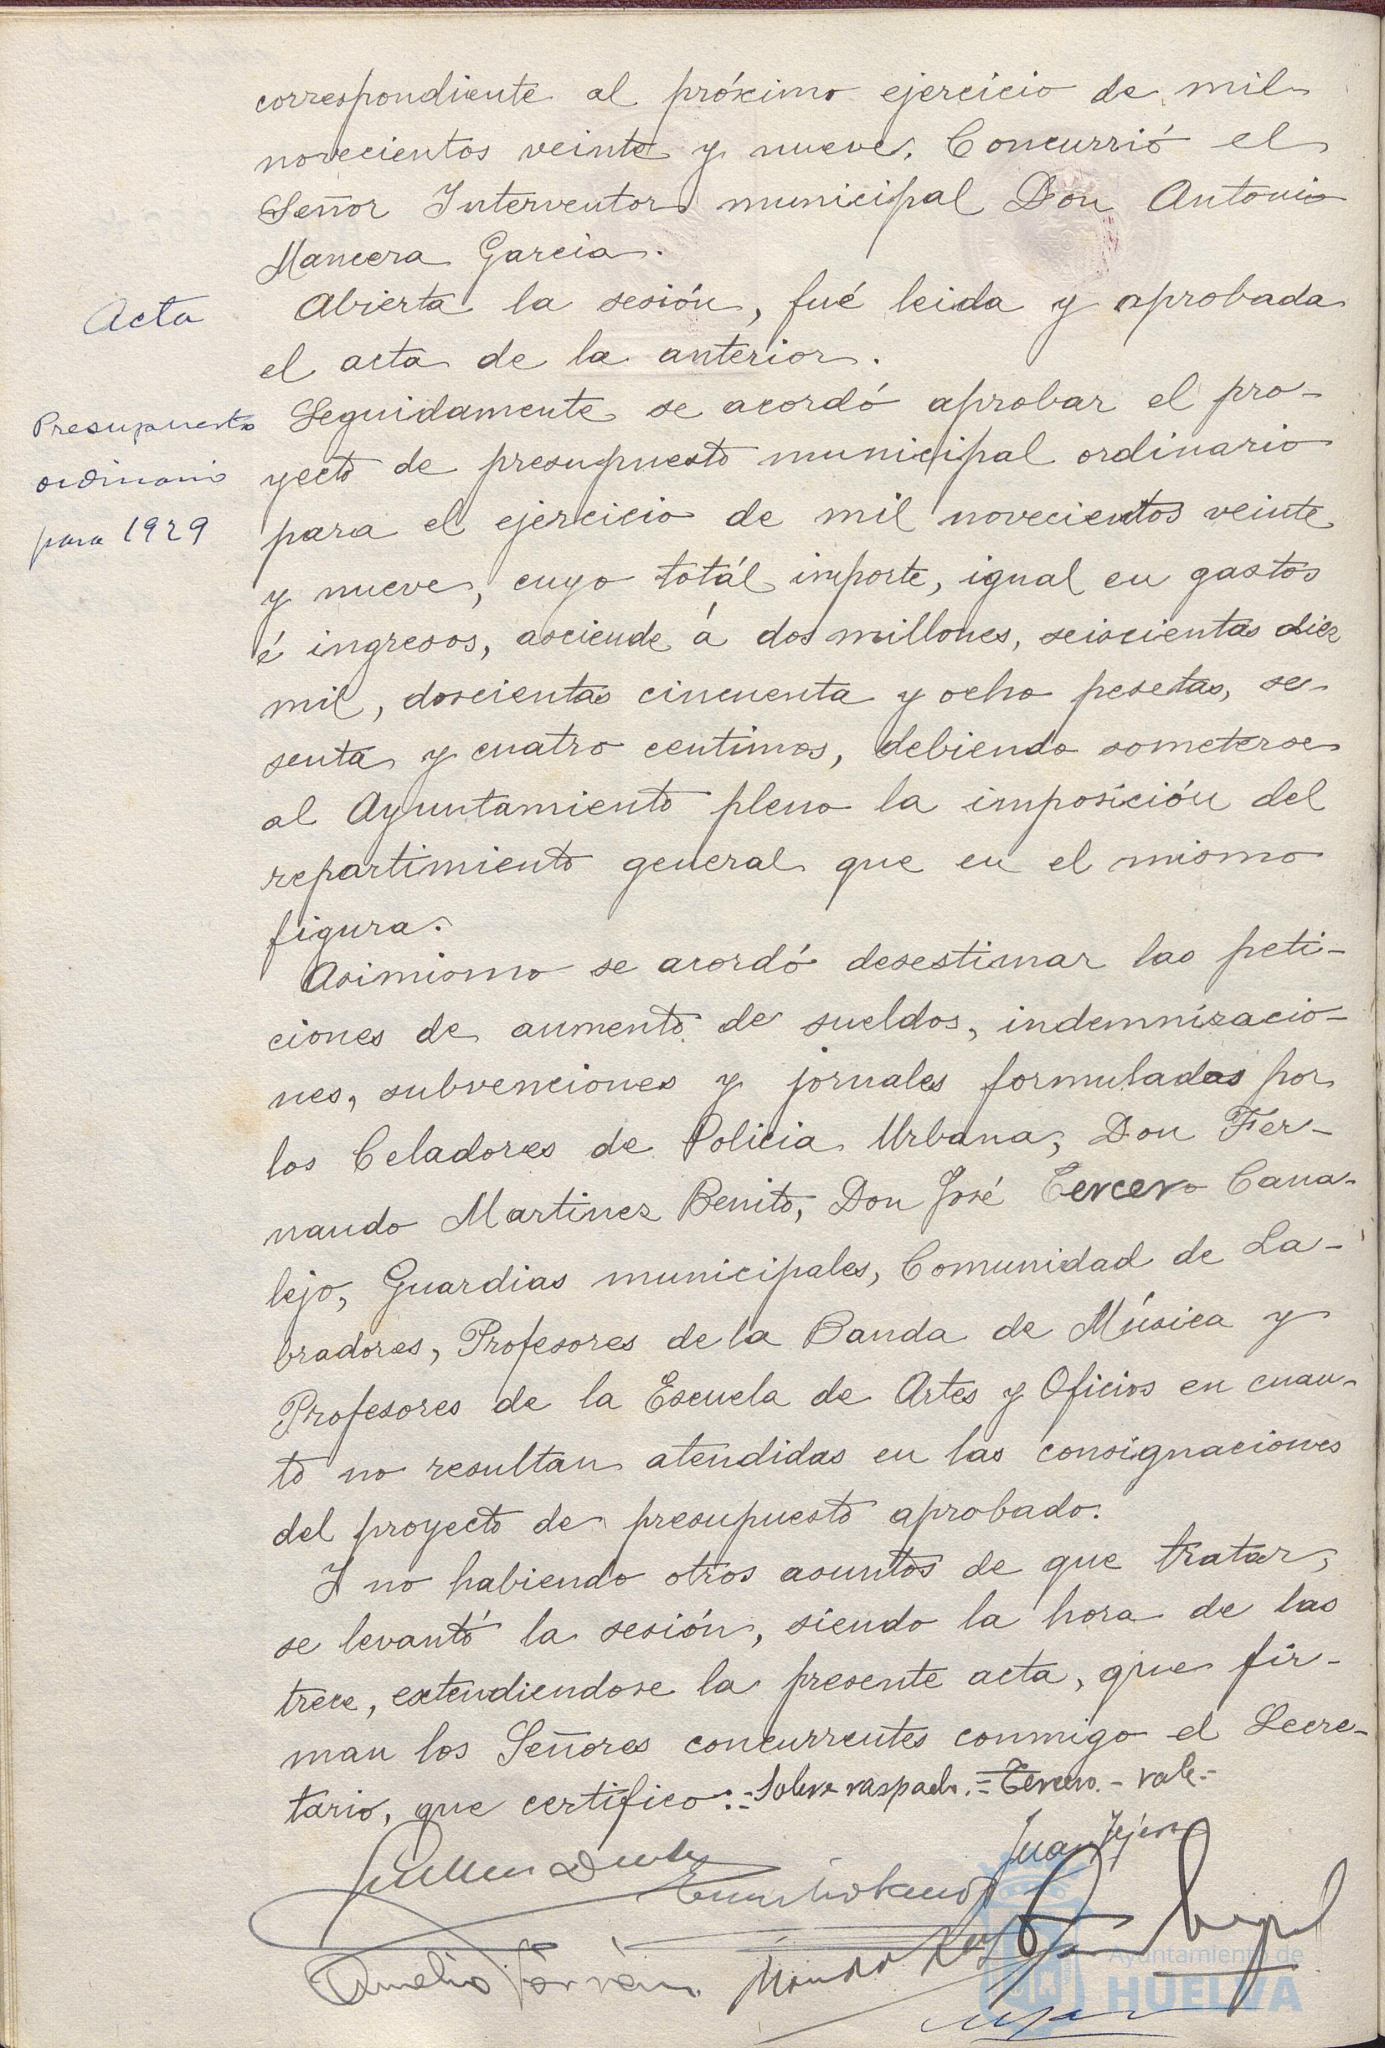 correspondiente al próximo ejercicio de mil
novecientos veinte y nueve. Concurrió el
Señor Interventor municipal Don Antonio
Mancera García.
Acta
Abierta la sesión, fué leida y aprobada
el acta de la anterior.
Presupuesto
ordinario
para 1929
Seguidamente se acordó aprobar el pro-
yecto de presupuesto municipal ordinario
para el ejercicio de mil novecientos veinte
y nueve, cuyo totál importe, igual en gastos
é ingresos, asciende á dos millones, seiscientas diez
mil, doscientas cincuenta y ocho pesetas, se-
senta y cuatro centimos, debiendo someterse
al Ayuntamiento pleno la imposición del
repartimiento general que en el mismo
figura.
Asimismo se acordó desestimar las peti-
ciones de aumento de sueldos, indemnizacio-
nes, subvenciones y jornales formuladas por
los Celadores de Policia Urbana, Don Fer-
nando Martinez Benito, Don José Tercero Cana-
lejo, Guardias municipales, Comunidad de La-
bradores, Profesores de la Banda de Música y
Profesores de la Escuela de Artes y Oficios en cuan-
to no resultan atendidas en las consignaciones
del proyecto de presupuesto aprobado.
Y no habiendo otros asuntos de que tratar,
se levantó la sesión, siendo la hora de las
trece, extendiendose la presente acta, que fir-
man los Señores concurrentes conmigo el Secre-
tario, que certifico:=Sobre raspado.=Tercero.-vale.-
Juan
Amelio
Ayuntamiento de
HUELVA